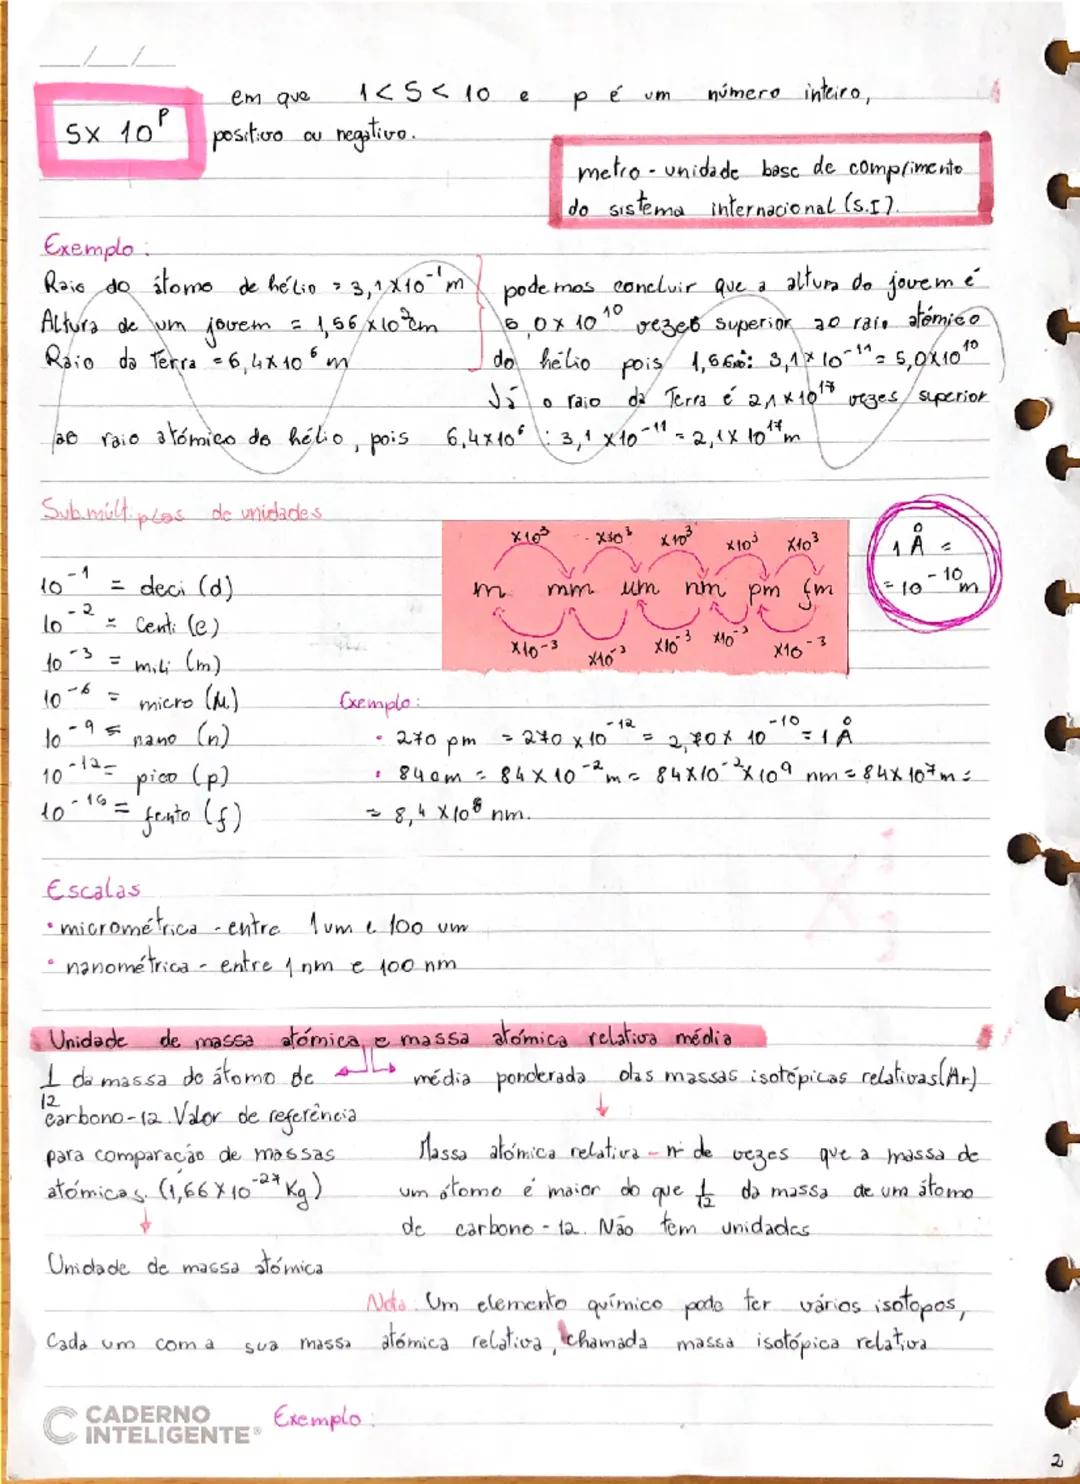 __/__/__
em que 1 < S < 10 e p é um número inteiro,
S x 10^p positivo ou negativo.
metro - unidade base de comprimento
do sistema internacional (S.I).
Exemplo:
Raio do átomo de hélio = 3,1 x 10^-1 m
Altura de um jovem = 1,56 x 10^2 cm
Raio da Terra = 6,4 x 10^6 m
podemos concluir que a altura do jovem é
5,0 x 10^10 vezes superior ao raio atómico
do hélio pois 1,56 : 3,1 x 10^-11 = 5,0 x 10^10
Já o raio da Terra é 2,1 x 10^17 vezes superior
ao raio atómico do hélio, pois 6,4 x 10^6 : 3,1 x 10^-11 = 2,1 x 10^17 m
Submúltiplos de unidades
x10^3 x10^3 x10^3 x10^3 x10^3
m mm um nm pm fm
x10^-3 x10^-3 x10^-3 x10^-3 x10^-3
1 Å =
= 10^-10 m
10^-1 = deci (d)
10^-2 = Centi (c)
10^-3 = mili (m)
10^-6 = micro (M)
10^-9 = nano (n)
10^-12 = pico (p)
10^-16 = fento (f)
Exemplo:
• 270 pm = 270 x 10^-12 = 2,70 x 10^-10 = 1 Å
• 84 cm = 84 x 10^-2 m = 84 x 10^-2 x 10^9 nm = 84 x 10^7 m =
= 8,4 x 10^8 nm.
Escalas
• micrométrica - entre 1 um e 100 um
• nanométrica - entre 1 nm e 100 nm
Unidade de massa atómica e massa atómica relativa média
1/12 da massa do átomo de
carbono-12. Valor de referência
para comparação de massas
atómicas. (1,66 x 10^-27 Kg)
Unidade de massa atómica
média ponderada das massas isotópicas relativas (Ar)
Massa atómica relativa - nº de vezes que a massa de
um átomo é maior do que 1/12 da massa de um átomo
de carbono - 12. Não tem unidades
Nota: Um elemento químico pode ter vários isotopos,
Cada um com a sua massa atómica relativa, chamada massa isotópica relativa
Exemplo:
CADERNO
INTELIGENTE®
2